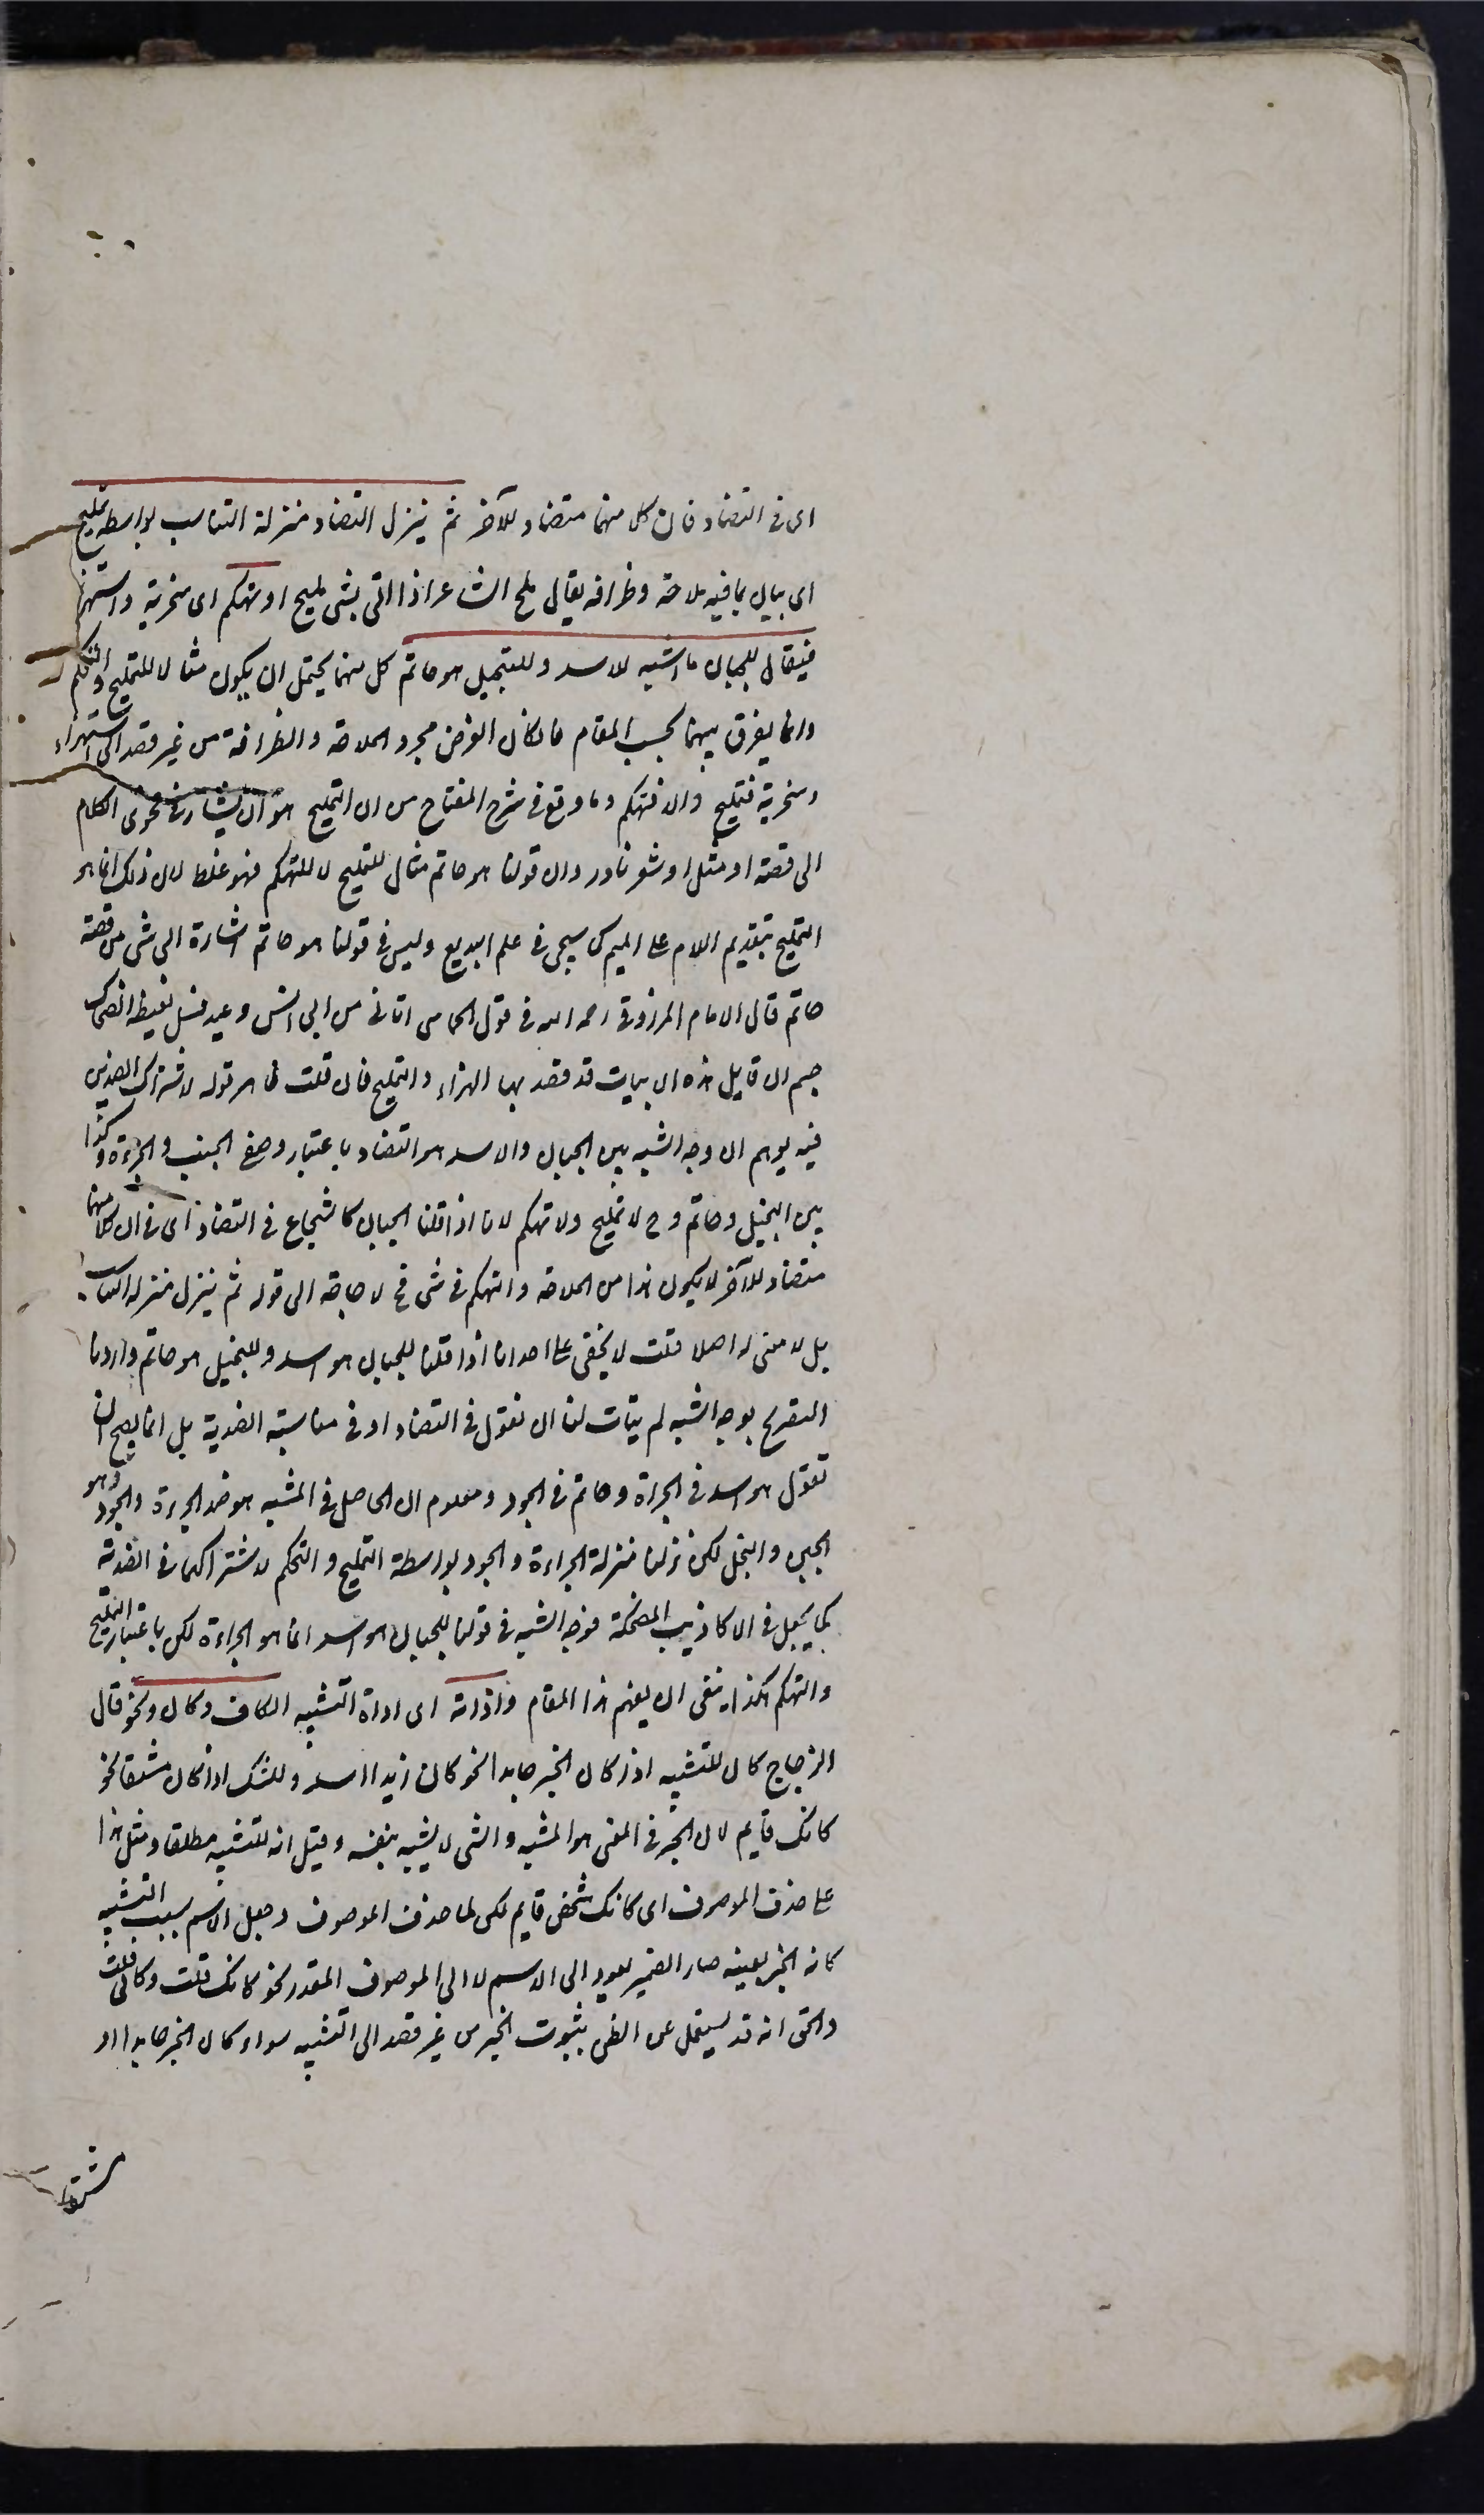 اى فى التضاد فان كل منهما متضاد للآخر ثم ينزل التضاد منزلة التناسب بواسطة تمليح
اى بيان بما فيه ملاحة وظرافة يقال ملح الشاعر اذا اتى بشى مليح او تهكم اى سخرية واستهزا
فيقال للجبان ما اشبهه للاسد وللبخيل هو حاتم كل منهما يحتمل ان يكون مثالا للتمليح والتهكم
وانما يفرق بينهما بحسب المقام فان كان الغرض مجرد الملاحة والظرافة من غير قصد الى استهزاء
وسخرية فتمليح والا فتهكم وما وقع فى شرح المفتاح من ان التمليح هو ان يشار فى فحوى الكلام
الى قصة او مثل او شعر نادر وان قولنا هو حاتم مثال للتمليح لا للتهكم فهو غلط لان ذلك انما هو
التلميح بتقديم اللام على الميم كما سيجى فى علم البديع وليس فى قولنا هو حاتم اشارة الى شى من قصة
حاتم قال الامام المرزوقى رحمه الله فى قول الحماسى اتانى من ابى انس وعيد فسل تغيظ الضحاك
جسم ان قايل هذه الابيات قد قصد بها الهزاء والتمليح فان قلت ظاهر قوله لاشتراك الضدين
فيه يوهم ان وجه الشبه بين الجبان والاسد هو التضاد باعتبار وصفى الجبن والجرءة وكذا
بين البخيل وحاتم وح لا تمليح ولا تهكم لانا اذا قلنا الجبان كالشجاع فى التضاد اى فى ان كلا منهما
متضاد للآخر لا يكون هذا من الملاحة والتهكم فى شى فح لا حاجة الى قوله ثم ينزل منزلة التناسب
بل لا معنى له اصلا قلت لا يخفى على احد انا اذا قلنا للجبان هو اسد وللبخيل هو حاتم واردنا
التصريح بوجه الشبه لم يتات لنا ان نقول فى التضاد او فى مناسبة الضدية بل انما يصح ان
نقول هو اسد فى الجراة وحاتم فى الجود ومعلوم ان الحاصل فى المشبه هو ضد الجرءة والجود وهو
الجبن والبخل لكن نزلنا منزلة الجراءة والجود بواسطة التمليح والتهكم لاشتراكهما فى الضدية
كما يجعل فى الاكاذيب المضحكة فوجه الشبه فى قولنا للجبان هو اسد انما هو الجراءة لكن باعتبار التمليح
والتهكم هكذا ينبغى ان يفهم هذا المقام واداته اى اداة التشبيه الكاف وكان ونحو قال
الزجاج كان للتشبيه اذا كان الخبر جامدا نحو كان زيدا اسد وللشك اذا كان مشتقا نحو
كانك قايم لان الخبر فى المعنى هو المشبه والشى لا يشبه بنفسه وقيل انه للتشبيه مطلقا ومثل هذا
على حذف الموصوف اى كانك شخص قايم لكن لما حذف الموصوف وجعل الاسم بسبب التشبيه
كانه الخبر بعينه صار الضمير يعود الى الاسم لا الى الموصوف المقدر نحو كانك قلت وكانى قلت
والحق انه قد يستعمل عن الظن بثبوت الخبر من غير قصد الى التشبيه سواء كان الخبر جامدا او
مشتقا